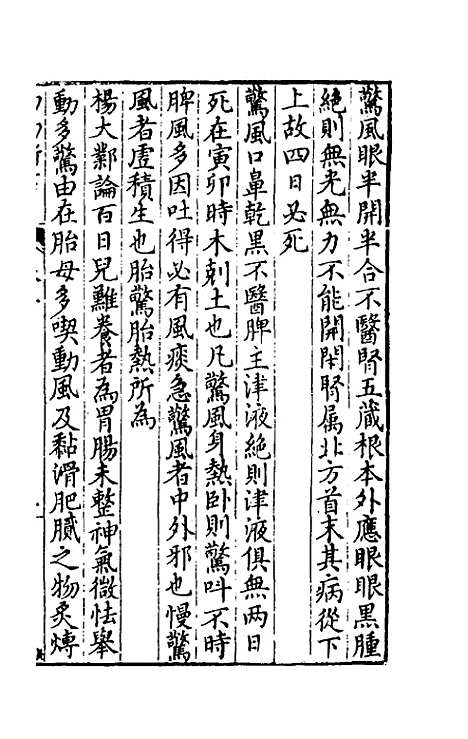 驚風眼半開半合不醫腎五藏根本外應眼眼黑腫
絕則無光無力不能開閉腎属北方首末其病從下
上故四日必死
驚風口鼻乾黑不醫脾主津液絕則津液俱無两日
死在寅卯時木剋土也凡驚風身熱卧則驚叫不時
脾風多因吐得必有風痰急驚風者中外邪也慢驚
風者虗積生也胎驚胎熱所為
楊大鄴論百日兒難養者為胃腸未整神氣微怯舉
動多驚由在胎母多喫動風及黏滑肥膩之物炙煿